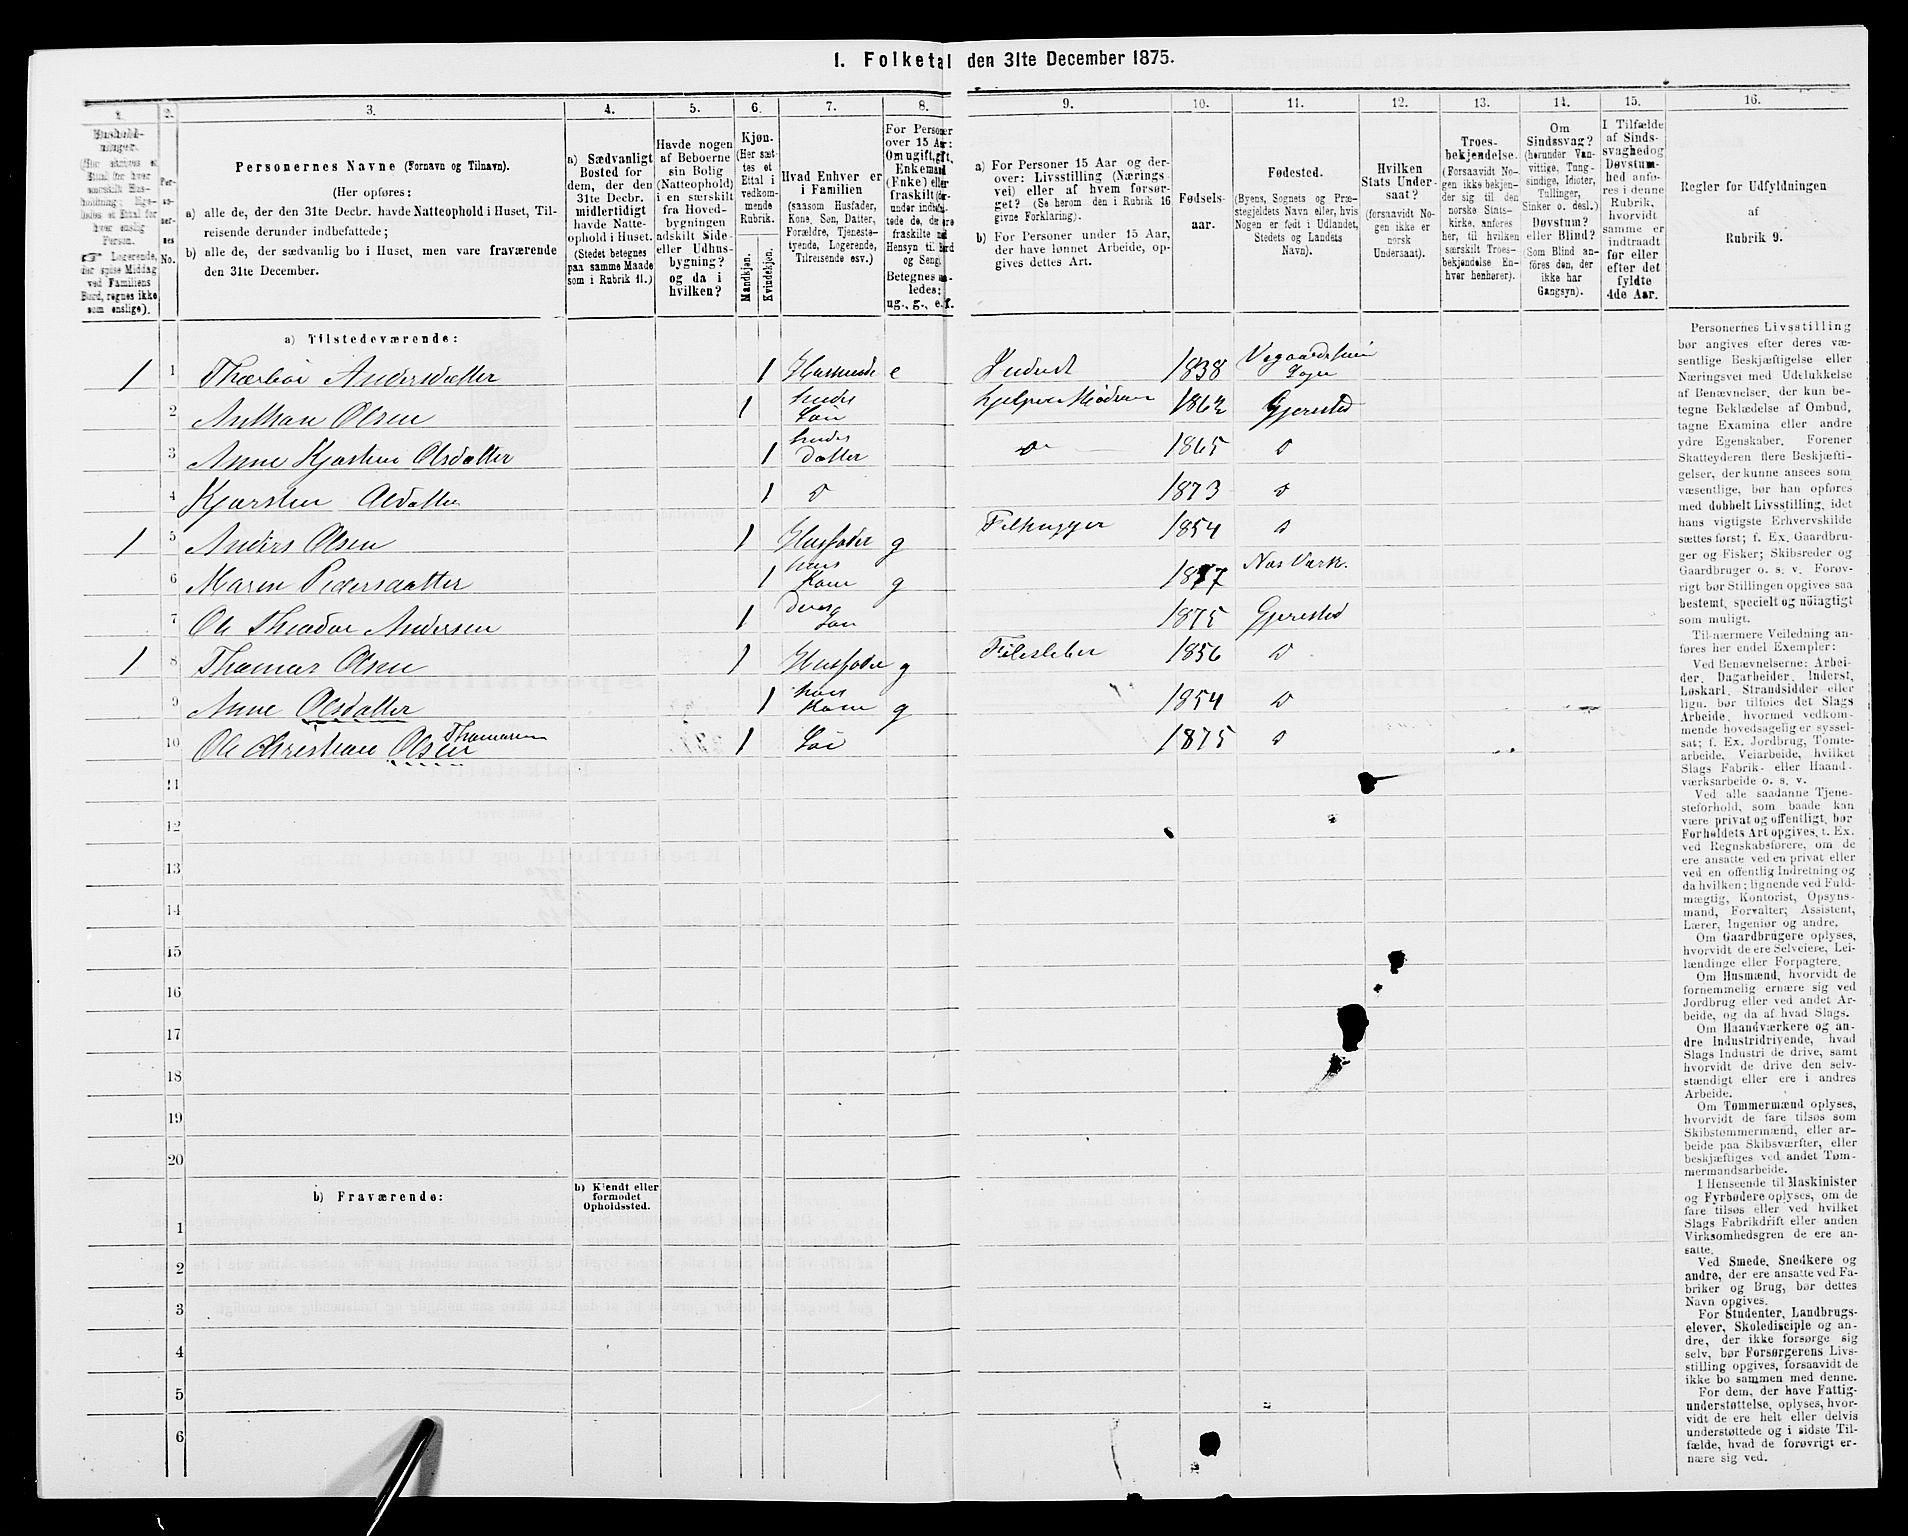 1. Folketal den 31te December 1875.
1. 2. 3. 4. 5. 6. 7. 8. 9. 10. 11. 12. 13. 14. 15. 16.
Hushold-
ninger.
(Her skrives et
Ettal for hver
særskilt Hus-
holdning; Ege-
ledes et Ettal for
hver enslig
Person.
☞ Logerende,
der spise Middag
ved Familiens
Bord, regnes ikke
som enslige).
Per-
so-
ner-
nes
No.
Personernes Navne (Fornavn og Tilnavn).
(Her opføres:
a) alle de, der den 31te Decbr. havde Natteophold i Huset, Til-
reisende derunder indbefattede;
b) alle de, der sædvanlig bo i Huset, men vare fraværende
den 31te December.
a) Sædvanligt
Bosted for
dem, der den
31te Decbr.
midlertidigt
havde Natte-
ophold i Huset.
(Stedet betegnes
paa samme Maade
som i Rubrik 11.)
Havde nogen
af Beboerne
sin Bolig
(Natteophold)
i en særskilt
fra Hoved-
bygningen
adskilt Side-
eller Udhus-
bygning?
og da i
hvilken?
Kjøn.
(Her sæt-
tes et
Ettal i
vedkom-
mende
Rubrik.
Mandkjøn.
Kvindekjøn.
Hvad Enhver er
i Familien
(saasom Husfader,
Kone, Søn, Datter,
Forældre, Tjeneste-
tyende, Logerende,
Tilreisende osv.)
For Personer
over 15 Aar:
Om ugift, gift,
Enkemand
(Enke) eller
fraskilt (der-
under indbefat-
tede de, der ere
fraskilte med
Hensyn til Bord
og Seng).
Betegnes saa-
ledes:
ug., g., e. f.
a) For Personer 15 Aar og der-
over: Livsstilling (Nærings-
vei) eller af hvem forsør-
get? (Se herom den i Rubrik 16
givne Forklaring).
b) For Personer under 15 Aar,
der have lønnet Arbeide, op-
gives dettes Art.
Fødsels-
aar.
Fødested.
(Byens, Sognets og Præ-
stegjeldets Navn eller, hvis
Nogen er født i Udlandet,
Stedets og Landets
Navn).
Hvilken
Stats Under-
saat?
(forsaavidt No-
gen ikke er
norsk
Undersaat).
Troes-
bekjendelse.
(Forsaavidt No-
gen ikke bekjen-
der sig til den
norske Stats-
kirke, anføres
her, til hvilken
særskilt Troes-
bekjendelse En-
hver henhører).
Om
Sindssvag?
(herunder Van-
vittige, Tung-
sindige, Idioter,
Tullinger,
Sinker o. desl.)
Døvstum?
eller Blind?
(Som Blind an-
føres den, der
ikke har
Gangsyn).
I Tilfælde
af Sinds-
svaghed og
Døvstum-
hed anfø-
res i denne
Rubrik,
hvorvidt
samme er
indtraadt
før eller
efter det
fyldte
4de Aar.
Regler for Udfyldningen
af
Rubrik 9.
a) Tilstedeværende:
1 1 Thorbor Andersdatter 1 Husmoder e Inderst 1838 Vegaardsheien Sogn
2 Anthon Olsen 1 hendes Søn hjelper Moderen 1862 Gjerestad
3 Anne Kjerstine Olsdatter 1 hendes Datter Do 1865 D
4 Kjersten Olsdatter 1 D 1873 D
1 5 Anders Olsen 1 Husfader g Filhugger 1854 D
6 Maren Pedersdatter 1 hans Kone g 1857 Næs Værk.
7 Ole Theodor Andersen 1 deres Søn 1875 Gjerestad
1 8 Thomas Olsen 1 Husfader g Filesleber 1856 D
9 Anne Olsdatter 1 hans Kone g 1854 D
10 Ole Christian Olsen Thomassen 1 Søn 1875 D
11
12
13
14
15
16
17
18
19
20
b) Fraværende:
b) Kjendt eller
formodet
Opholdssted.
1
2
3
4
5
6
Personernes Livsstilling
bør angives efter deres væ-
sentlige Beskjæftigelse eller
Næringsvei med Udelukkelse
af Benævnelser, der kun be-
tegne Beklædelse af Ombud,
tagne Examina eller andre
ydre Egenskaber. Forener
Skatteyderen flere Beskjæfti-
gelser, der kunne ansees som
væsentlige, bør han opføres
med dobbelt Livsstilling, idet
hans vigtigste Erhvervskilde
sættes først; f. Ex. Gaardbru-
ger og Fisker; Skibsreder og
Gaardbruger o. s. v. Forøv-
rigt bør Stillingen opgives saa
bestemt, specielt og nøiagtigt
som muligt.
Til nærmere Veiledning an-
føres her endel Exempler:
Ved Benævnelserne: Arbei-
der, Dagarbeider, Inderst,
Løskarl, Strandsidder eller
lign. bør tilføies det Slags
Arbeide, hvormed vedkom-
mende hovedsagelig er syssel-
sat; f. Ex. Jordbrug, Tomte-
arbeide, Veiarbeide, hvilket
Slags Fabrik- eller Haand-
værksarbeide o. s. v.
Ved alle saadanne Tjene-
steforhold, som baade kan
være privat og offentligt, bør
Forholdets Art opgives, t. Ex.
ved Regnskabsførere, om de
ere ansatte ved en privat eller
ved en offentlig Indretning og
da hvilken; lignende ved Fuld-
mægtig, Kontorist, Opsyns-
mand, Forvalter; Assistent,
Lærer, Ingeniør og andre.
Om Gaardbrugere oplyses,
hvorvidt de ere Selveiere, Lei-
lændinge eller Forpagtere.
Om Husmænd, hvorvidt de
fornemmelig ernære sig ved
Jordbrug eller ved andet Ar-
beide, og da af hvad Slags.
Om Haandværkere og an-
dre Industridrivende, hvad
Slags Industri de drive, samt
hvorvidt de drive den selv-
stændigt eller ere i andres
Arbeide.
Om Tømmermænd oplyses,
hvorvidt de fare tilsøs som
Skibstømmermænd, eller ar-
beide paa Skibsværfter, eller
beskjæftiges ved andet Tøm-
mermandsarbeide.
I Henseende til Maskinister
og Fyrbødere oplyses, om de
fare tilsøs eller ved hvilket
Slags Fabrikdrift eller anden
Virksomhedsgren de ere an-
satte.
Ved Smede, Snedkere og
andre, der ere ansatte ved Fa-
briker og Brug, bør dettes
Navn opgives.
For Studenter, Landbrugs-
elever, Skoledisciple og an-
dre, der ikke forsørge sig
selv, bør Forsørgerens Livs-
stilling opgives, forsaavidt de
ikke bo sammen med denne.
For dem, der have Fattig-
understøttelse, oplyses, hvor-
vidt de ere helt eller delvis
understøttede og i sidste Til-
fælde, hvad de forøvrigt er-
nære sig ved.